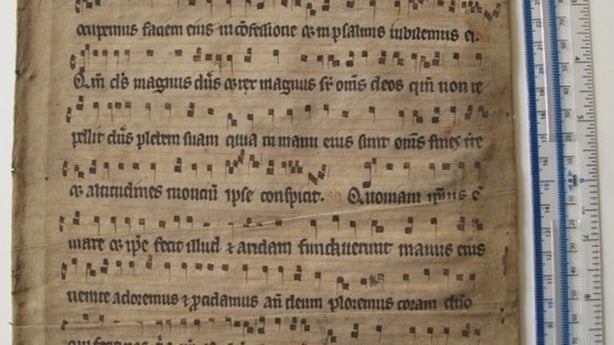 occupemus faciem eius in cōfessione et in psalmis iubilemus ei.
Qm̄ ds̄ magnus dn̄s et rex magnus sr̄ om̄s deos qm̄ non re
pellit dn̄s plebem suam quia in manu eius sunt om̄s fines t̄re
et altitudines montiū ipse conspicit. Quoniam ip̄ius ē
mare et ip̄e fecit illud et aridam fundauerunt manus eius
uenite adoremus et ꝓcidamus an̄ deum ploremus coram dn̄o